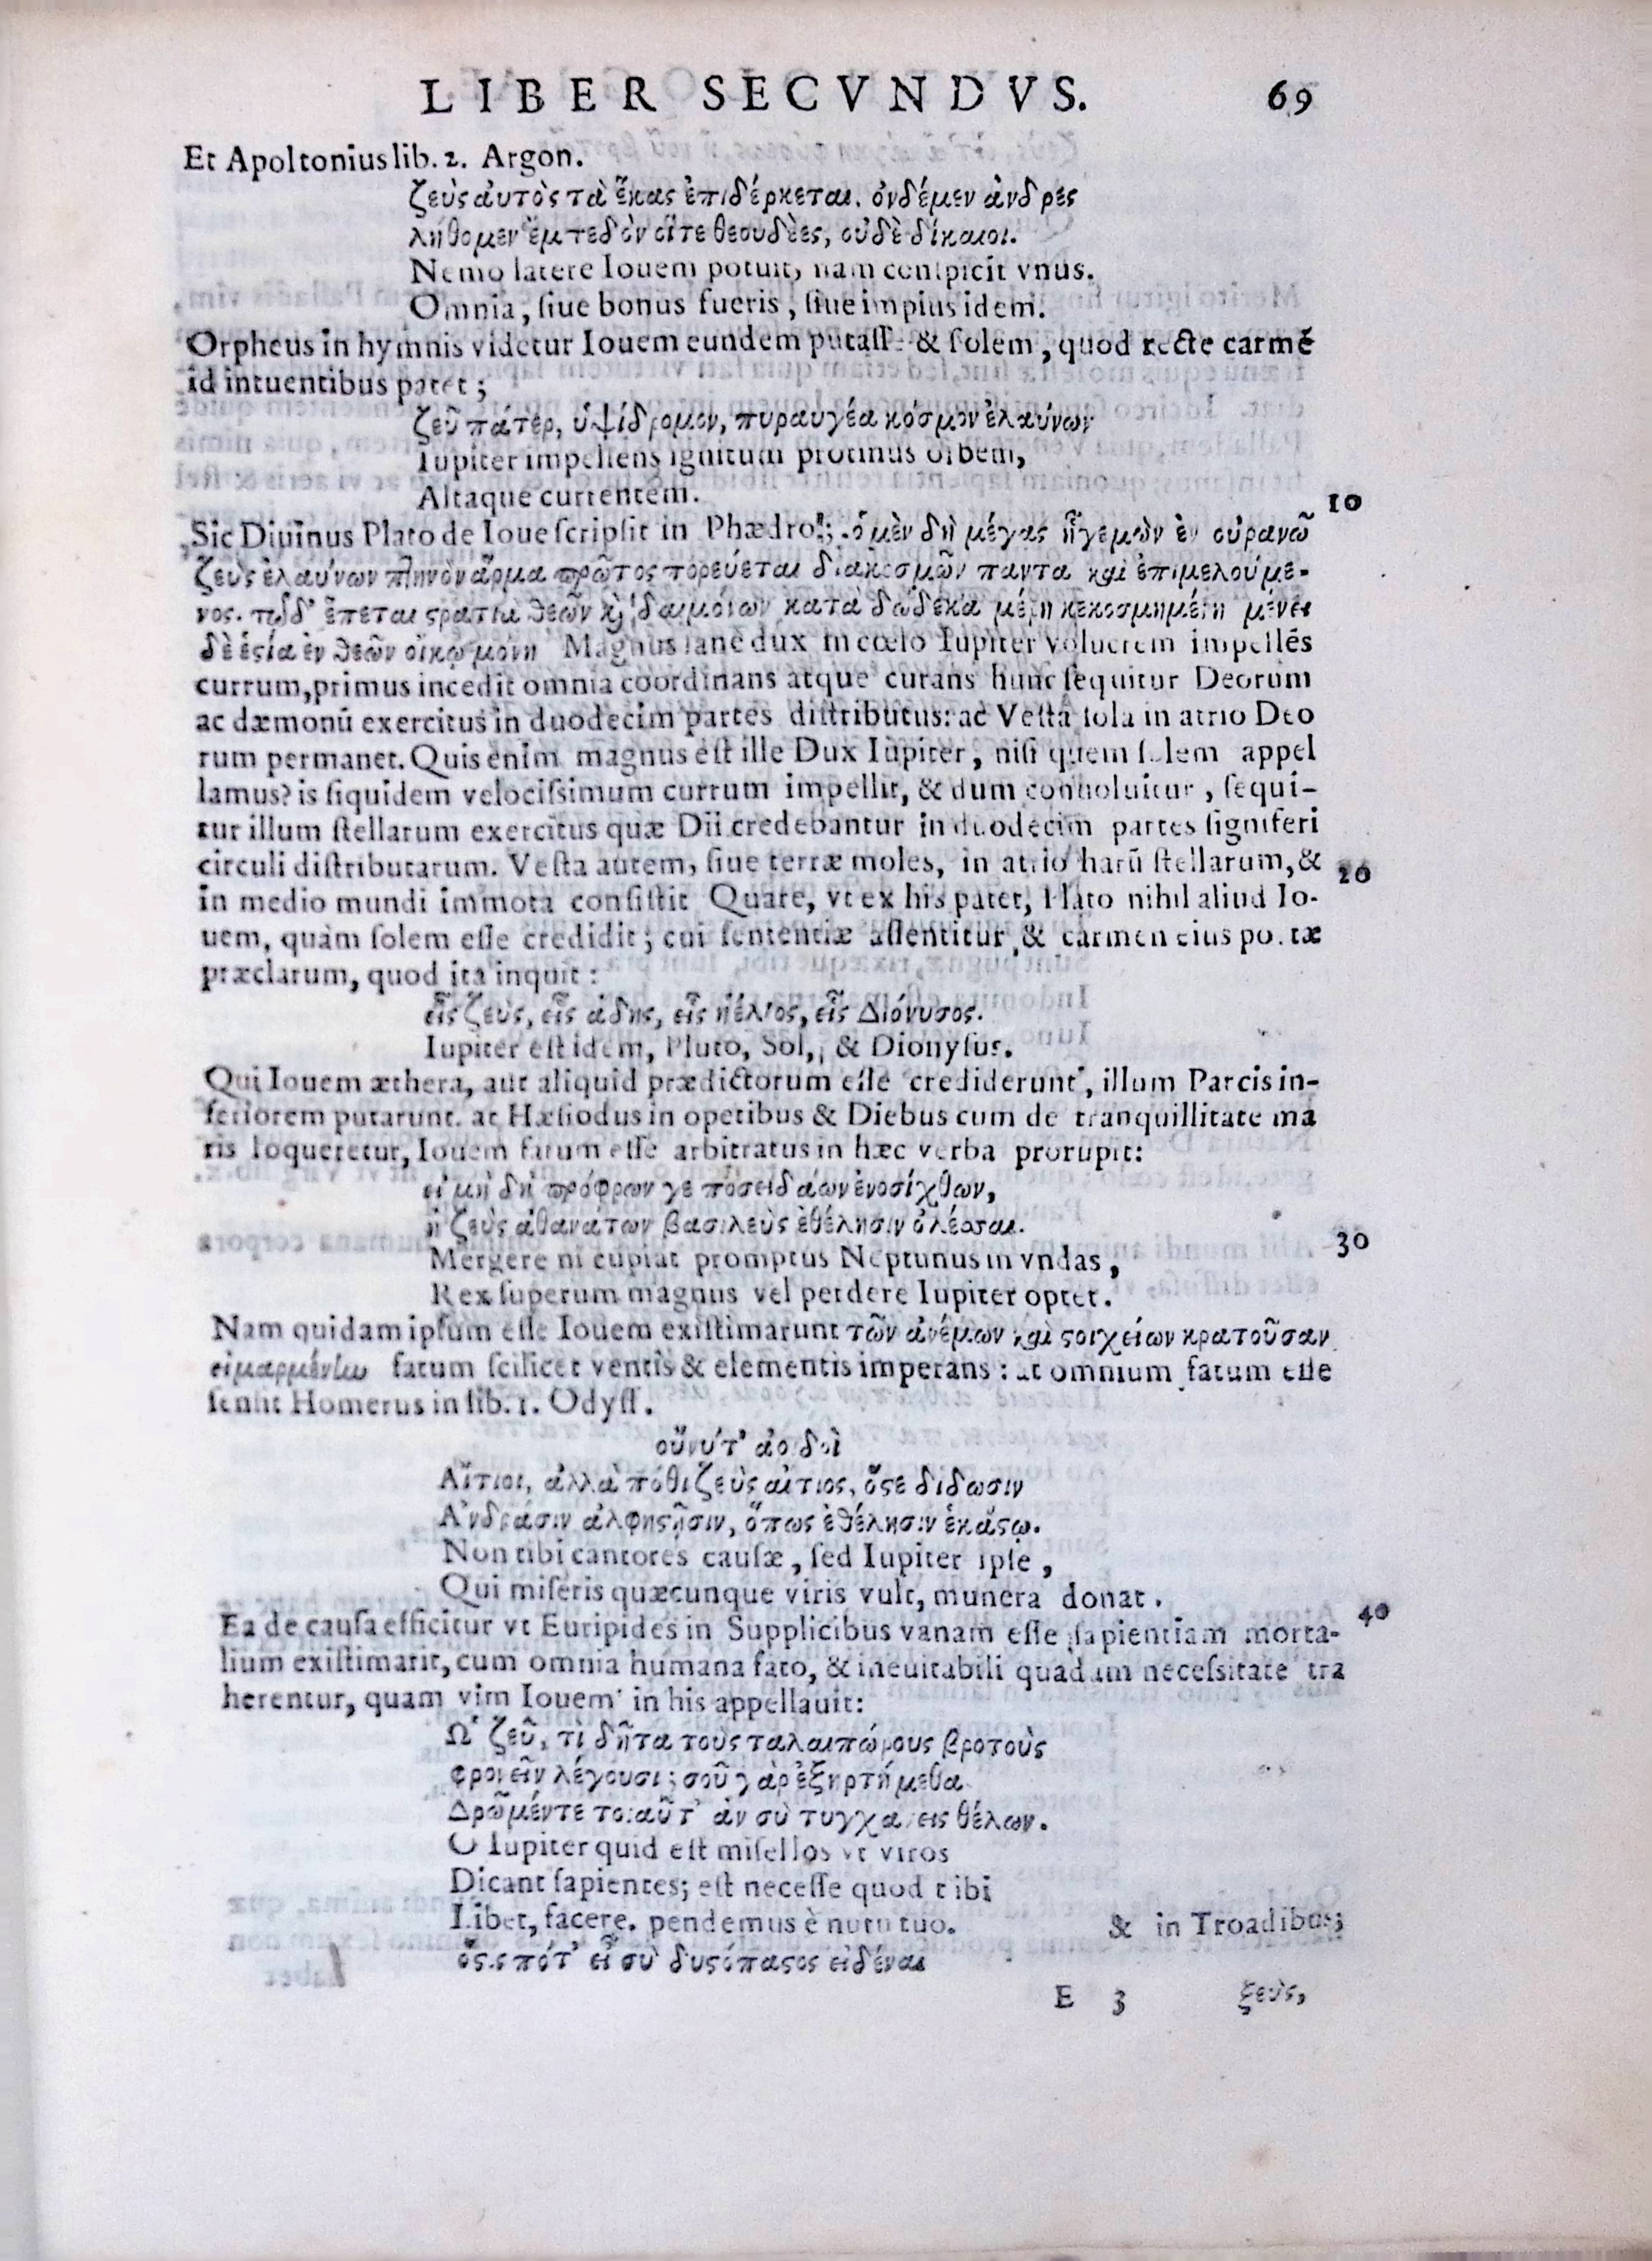 LIBER SECVNDVS. 69
Et Apoltonius lib. 2. Argon.
ζεὺς ἀυτὸς τὰ ἕκας ἐπιδέρκεται. ὀνδέμεν ἀνδρες
λήθομεν ἔμτεδὸν οἵτε θεουδέες, ουδὲ δίκαιοι.
Nemo latere Iouem potuit, nam conſpicit vnus.
Omnia, ſiue bonus fueris, ſiue impius idem.
Orpheus in hymnis videtur Iouem eundem putaſſe & ſolem, quod recte carmē
id intuentibus patet;
ζεῦ πάτερ, ὑψίδρομον, πυραυγέα κόσμον ἐλαύνων
Iupiter impellens ignitum protinus orbem,
Altaque currentem. 10
Sic Diuinus Plato de Ioue ſcripſit in Phædro; ὁ μὲν δὴ μέγας ἡγεμὼν ἐν ουρανῶ
ζεὺς ἐλαύνων πληνὸν ἅρμα πρῶτος πορεύεται διακοσμῶν παντα καὶ ἐπιμελούμε-
νος. τῶδ' ἕπεται ςρατιὰ θεῶν κὶ δαιμόνων κατὰ δώδεκα μέρη κεκοσμημένη μένει
δὲ ἑςία ἐν θεῶν οἴκῳ μόνη Magnus ſane dux in cœlo Iupiter volucrem impellēs
currum, primus incedit omnia coordinans atque curans hunc ſequitur Deorum
ac dæmonū exercitus in duodecim partes diſtributus: ac Veſta ſola in atrio Deo
rum permanet. Quis enim magnus eſt ille Dux Iupiter, niſi quem ſolem appel
lamus? is ſiquidem velociſsimum currum impellit, & dum conuoluitur, ſequi-
tur illum ſtellarum exercitus quæ Dii credebantur in duodecim partes ſigniferi
circuli diſtributarum. Veſta autem, ſiue terræ moles, in atrio harū ſtellarum, & 20
in medio mundi immota conſiſtit Quare, vt ex his patet, Plato nihil aliud Io-
uem, quàm ſolem eſſe credidit; cui ſententiæ aſſentitur & carmen eius poetæ
præclarum, quod ita inquit:
εἷς ζεὺς, εἷς ἀδης, εἷς ἠέλιος, εἷς Διόνυσος.
Iupiter eſt idem, Pluto, Sol, & Dionyſus.
Qui Iouem æthera, aut aliquid prædictorum eſſe crediderunt, illum Parcis in-
feriorem putarunt. at Hæſiodus in operibus & Diebus cum de tranquillitate ma
ris loqueretur, Iouem fatum eſſe arbitratus in hæc verba prorupit:
εἰ μὴ δὴ πρόφρων γε ποσειδάων ἐνοσίχθων,
ἢ ζεὺς ἀθανάτων βασιλεὺς ἐθέλησιν ὀλέσσαι.
Mergere ni cupiat promptus Neptunus in vndas, 30
Rex ſuperum magnus vel perdere Iupiter optet.
Nam quidam ipſum eſſe Iouem exiſtimarunt τῶν ἀνέμων καὶ ςοιχείων κρατοῦσαν
εἱμαρμένην fatum ſcilicet ventis & elementis imperans: at omnium fatum eſſe
ſenſit Homerus in lib. 1. Odyſſ.
οὔνυ τ' ἀοιδοὶ
Αἴτιοι, ἀλλὰ πόθι ζεὺς αἴτιος, ὅςε δίδωσιν
Ἀνδράσιν ἀλφηςῆσιν, ὅπως ἐθέλησιν ἑκάςῳ.
Non tibi cantores cauſæ, ſed Iupiter ipſe,
Qui miſeris quæcunque viris vult, munera donat.
Ea de cauſa efficitur vt Euripides in Supplicibus vanam eſſe ſapientiam morta- 40
lium exiſtimarit, cum omnia humana fato, & ineuitabili quadam neceſsitate tra
herentur, quam vim Iouem in his appellauit:
Ω ζεῦ, τὶ δῆτα τοὺς ταλαιπώρους βροτοὺς
φρονεῖν λέγουσι; σοῦ γὰρ ἐξηρτήμεθα
Δρῶμέντε τοιαῦτ' ἀν σὺ τυγχανεις θέλων.
O Iupiter quid eſt miſellos vt viros
Dicant ſapientes; eſt neceſſe quod tibi
Libet, facere. pendemus è nutu tuo. & in Troadibus;
ὅςις πότ' εἶ σὺ δυςόπαςος εἰδέναι
E 3 ξεὺς,